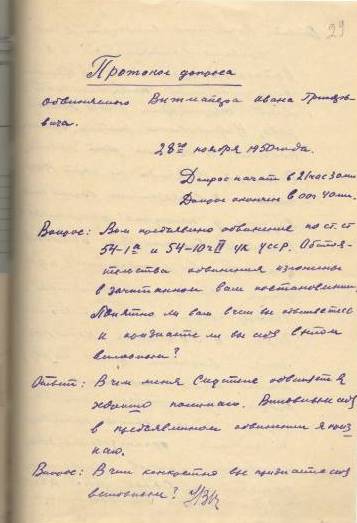 29
Протокол допроса
обвиняемого Витмайера Ивана
вича.
28го ноября 1950 года.
Допрос начат в 21 час
Допрос окончен в 00ч
Вопрос: Вам предъявлено обвинение по ст.ст.
54-1а и 54-10 ч II УК УССР. Обстоя-
тельства обвинения изложены
в зачитанном вам постановлении.
Понятно ли вам в чем вы обвиняетесь
и признаете ли вы себя в этом
виновным?
Ответ: В чем меня следствие обвиняет я
хорошо понимаю. Виновным себя
в предъявленном обвинении я приз
наю.
Вопрос: В чем конкретно вы признаете себя
виновным?